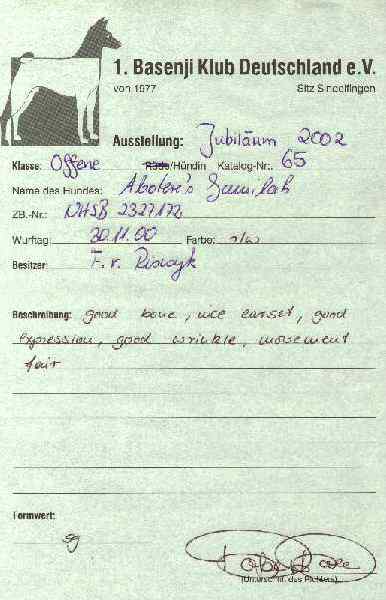 1. Basenji Klub Deutschland e.V.
von 1977 Sitz Sindelfingen
Ausstellung: Jubiläum 2002
Klasse: Offene Rüde/Hündin Katalog-Nr.: 65
Name des Hundes: Jamilah
ZB.-Nr.: NHSB 2327172
Wurftag: 30.11.00 Farbe: r/w
Besitzer: F. v.
Beschreibung: good bone, nice earset, good
expression, good wrinkle, movement
fair
Formwert:
sg
(Unterschrift des Richters)